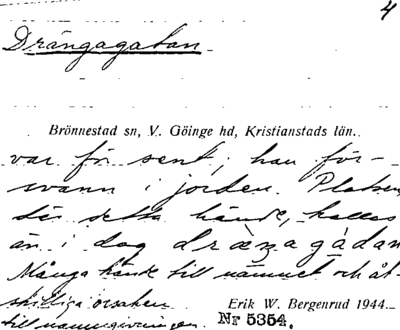 4
Drängagatan
Brönnestad sn, V. Göinge hd, Kristianstads län.
var för sent; han för-
svann i jorden. Platsen
där detta hände, kallas
än i dag
Många kände till namnet och åt-
skilliga orsaken
till namngivningen.
Erik W. Bergenrud 1944.
Nr 5354.